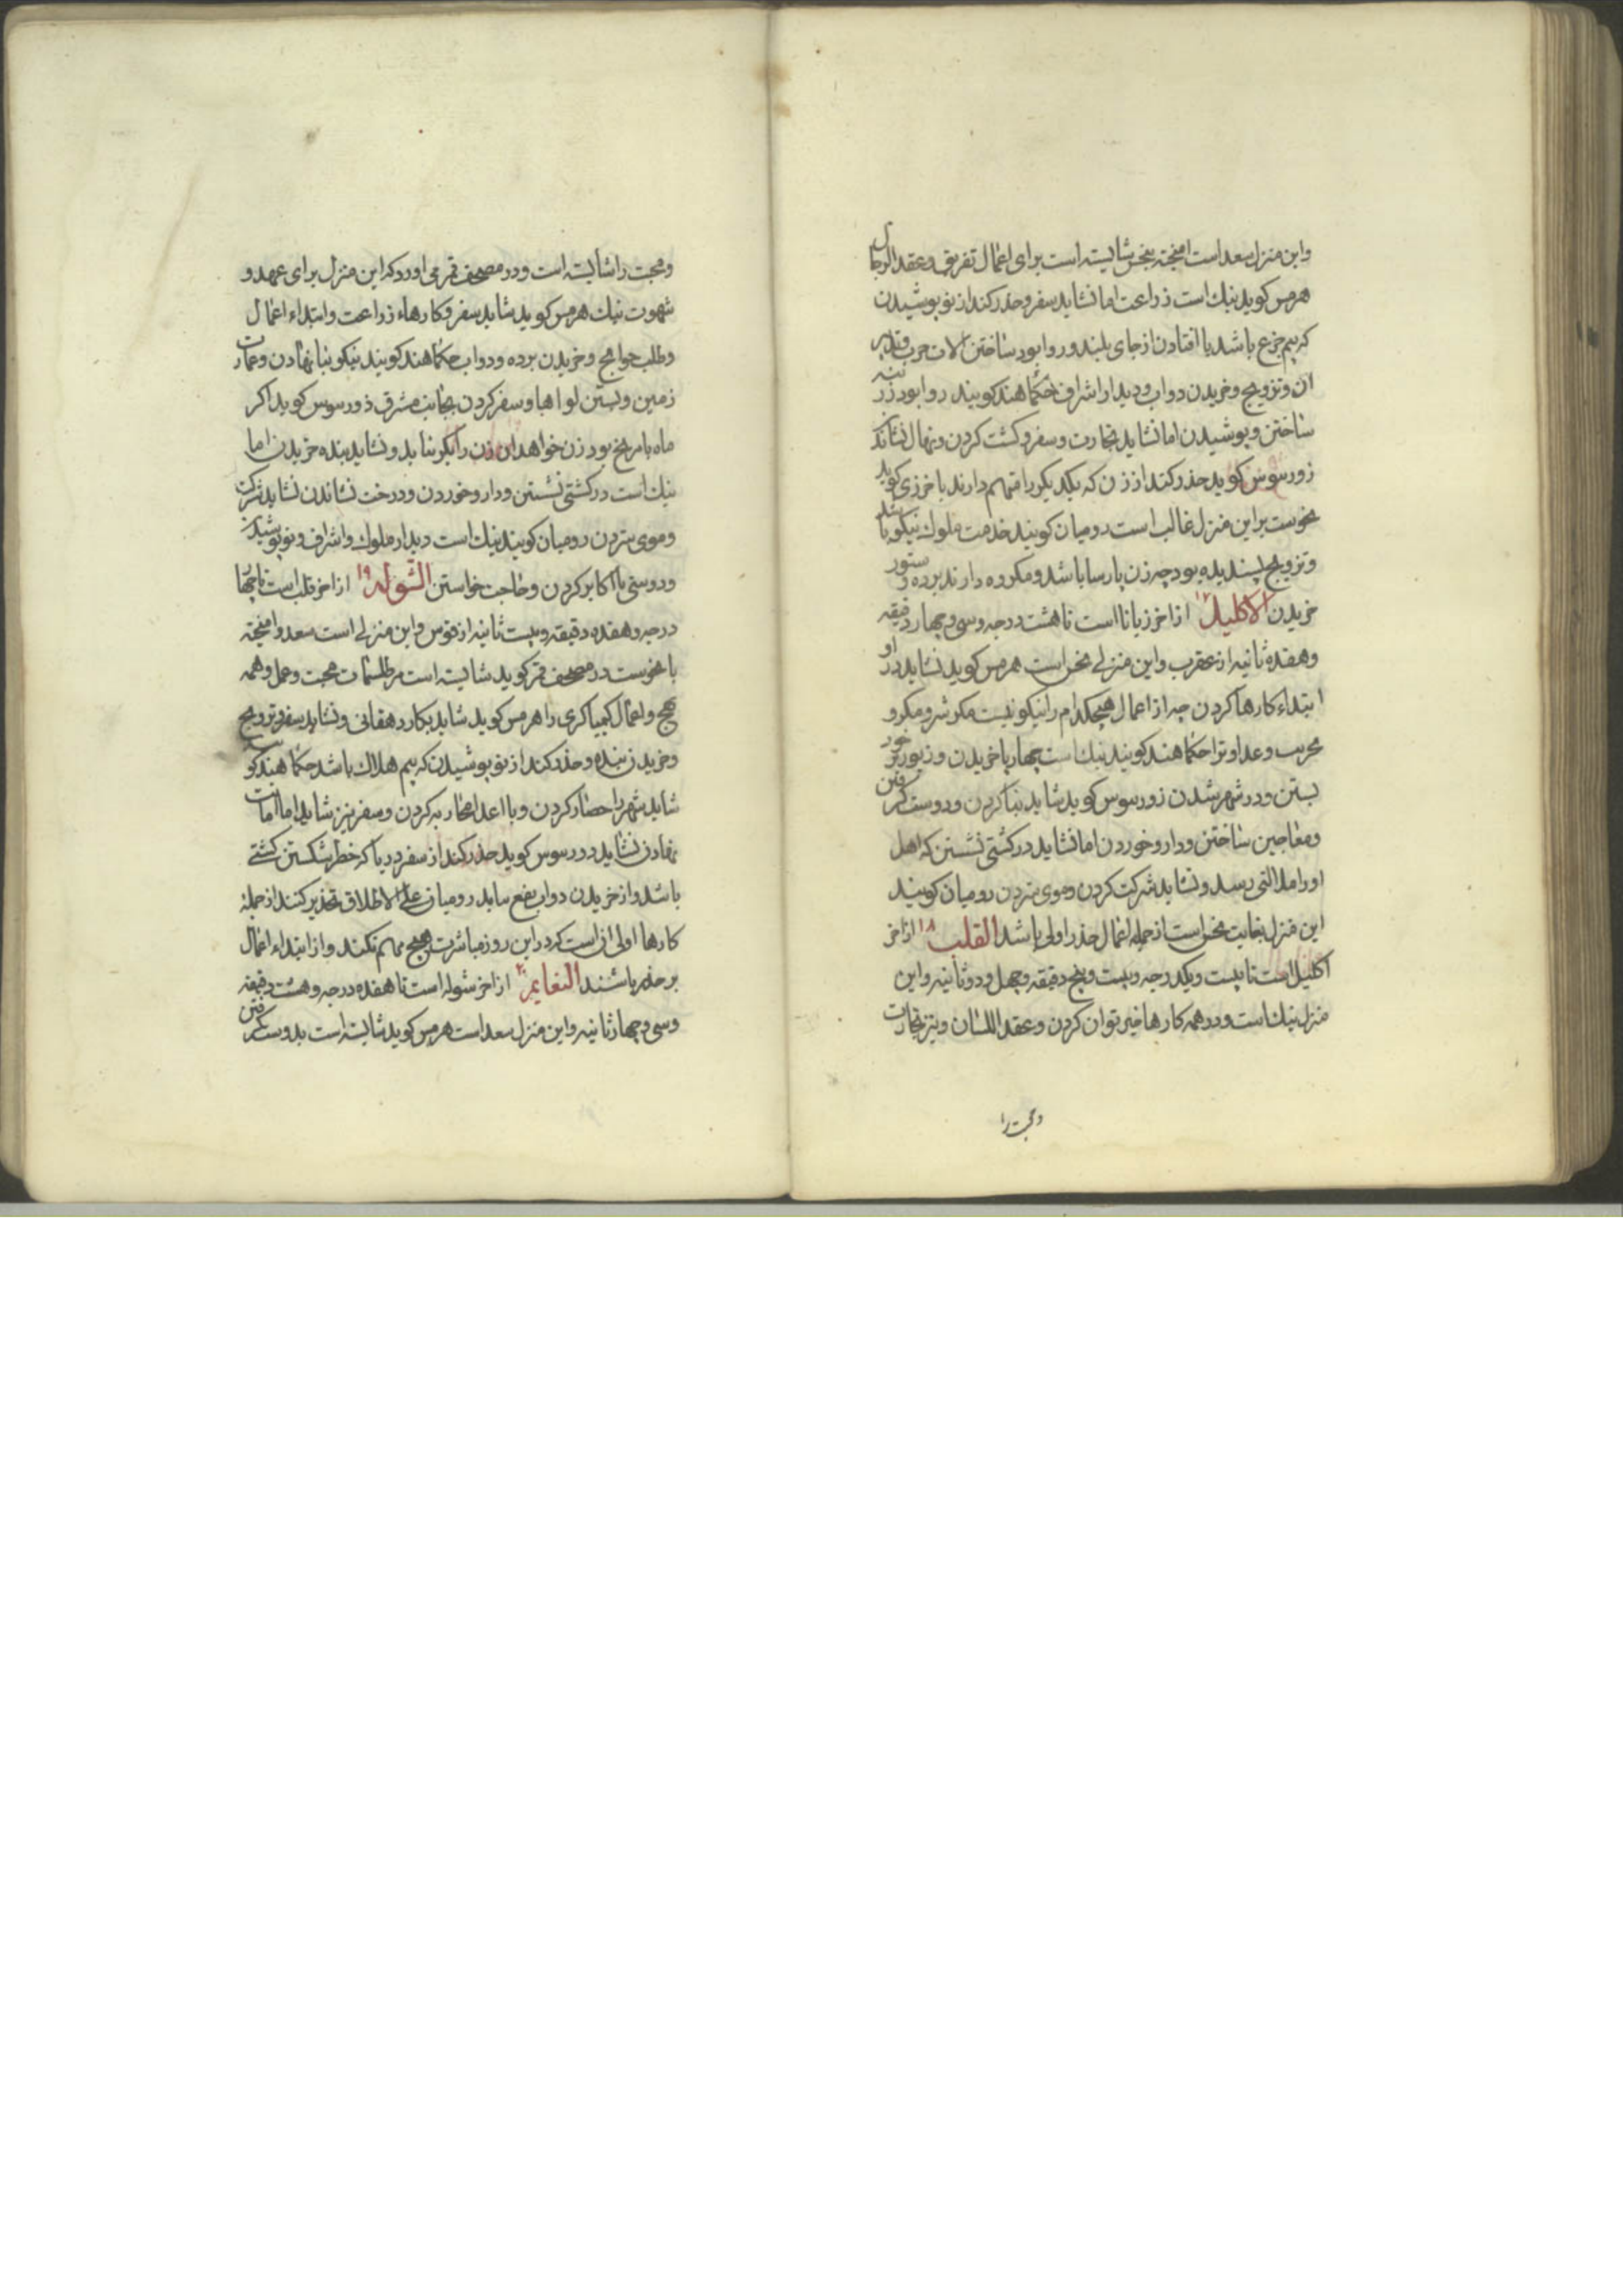 واین منزل سعد است امیخته بنحس شایسته است برای اعمال تفریق و عقد الرجال
هرمس کوید نیک است زراعت اما نشاید سفر و حذر کند از نو پوشیدن
که بیم جزع باشد یا افتادن از جای بلند و روا بود ساختن الات حرب و تدبیر
ان و تزویج و خریدن دواب و دیدار اشراف حکما هند کویند روا بود زرینه
ساختن و پوشیدن اما نشاید تجارت و سفر و کشت کردن و نهال نشاندن
زورسوس کوید حذر کند از زن که یکدیکر را متهم دارند باخرزی کوید
نحوست بر این منزل غالب است رومیان کویند خدمت ملوک نیکو باشد
و تزویج پسندیده بود چه زن پارسا باشد و مکروه دارند برده و ستور
خریدن الاکلیل ۱۷ از اخر زبانا است تا هشت درجه و سی و چهار دقیقه
و هفده ثانیه از عقرب و این منزلی نحس است هرمس کوید نشاید در او
ابتداء کارها کردن چه از اعمال هیچکدام را نیکو نیست مکر شر و مکر و
تخریب و عداوت را حکما هند کویند نیک است چهارپا خریدن و زیور بر خود
بستن و در شهر شدن زورسوس کوید شاید بنا کردن و دوست کرفتن
و معاجین ساختن و دارو خوردن اما نشاید در کشتی نشستن که اهل
او را ملالتی رسد و نشاید شرکت کردن و موی ستردن رومیان کویند
این منزل بغایت نحس است از جمله اعمال حذر اولی باشد القلب ۱۸ از اخر
اکلیل است تا بیست و یکدرجه و بیست و پنج دقیقه و چهل و دو ثانیه و این
منزل نیک است و در همه کارها خیر توان کردن و عقد اللسان و نیز تجارت
و محبت را
و محبت را شایسته است و در مصحف قمر می اورد که این منزل برای عهد و
شهوت نیک هرمس کوید شاید سفر و کارهاء زراعت و ابتداء اعمال
و طلب حوایج و خریدن برده و دواب حکما هند کویند نیکو بنا نهادن و عمارت
زمین و بستن لواها و سفر کردن بجانب مشرق ذورسوس کوید اکر
ماه با مریخ بود زن خواهد این زن را بکر نیابد و نشاید بنده خریدن اما
نیک است در کشتی نشستن و دارو خوردن و درخت نشاندن نشاید شرکت
و موی ستردن رومیان کویند نیک است دیدار ملوک و اشراف و نو پوشیدن
و دوستی با اکابر کردن و حاجت خواستن الشوله ۱۹ از اخر قلب است تا چهار
درجه و هفده دقیقه و بیست ثانیه از قوس و این منزلی است سعد و امیخته
با نحوست در مصحف قمر کوید شایسته است مر طلسمات محبت و عمل وهمه
هیج و اعمال کیمیاکری را هرمس کوید شاید بکار دهقانی و نشاید سفر و تزویج
و خریدن بنده و حذر کند از نو پوشیدن که بیم هلاک باشد حکما هند کویند
شاید شهر را حصار کردن و با اعدا محاربه کردن و سفر نیز شاید اما امانت
نهادن نشاید دورسوس کوید حذر کند از سفر دریا که خطر شکستن کشتی
باشد و از خریدن دواب رومیان علی الاطلاق تحذیر کنند از جملهٔ
کارها اولی ان است که در این روز مباشرت هیچ مهم نکند و از ابتداء اعمال
بر حذر باشند النعایم ۲۰ از اخر شوله است تا هفده درجه و هشت دقیقه
و سی و چهار ثانیه و این منزل سعد است هرمس کوید شایسته است بدوست کرفتن